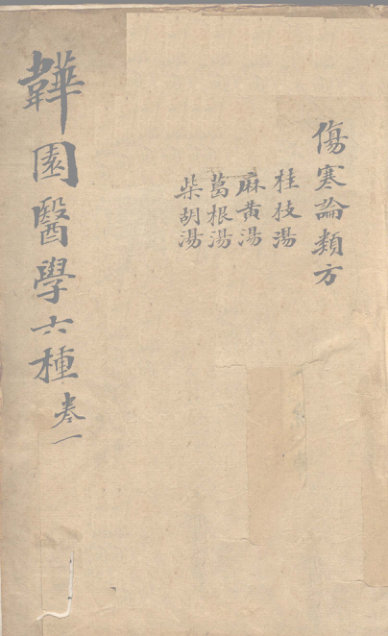 傷寒論類方
桂枝湯
麻黃湯
葛根湯
柴胡湯
韡園醫學六種 卷一